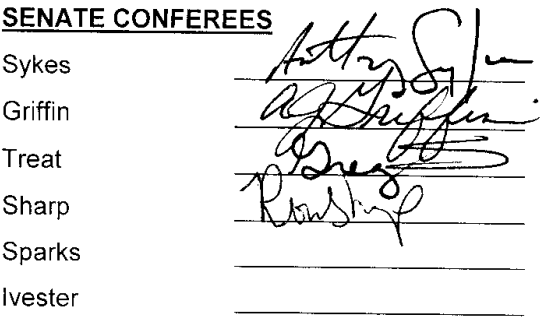 SENATE CONFEREES
Sykes Anthony Sykes
Griffin AJ Griffin
Treat Greg
Sharp Ron Sharp
Sparks
Ivester